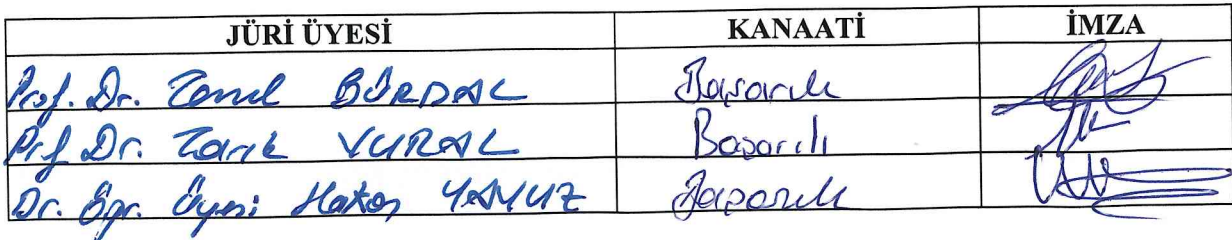 JÜRİ ÜYESİ KANAATİ İMZA
Prof. Dr. BÜRDAL Başarılı
Prf. Dr. Tarık VURAL Başarılı
Dr. Öğr. Üyesi Hakan YAVUZ Başarılı